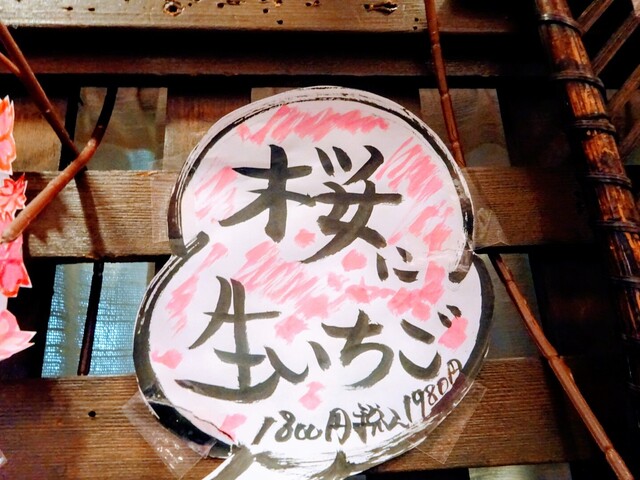 桜に
生いちご
1800円税込1980円